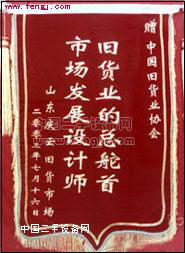 www.fengj.com
赠 中国旧货业协会
旧货业的总舵首
市场发展设计师
山东庆云旧货市场
二零零年七月十六日
中国二手设备网
www.fengj.com